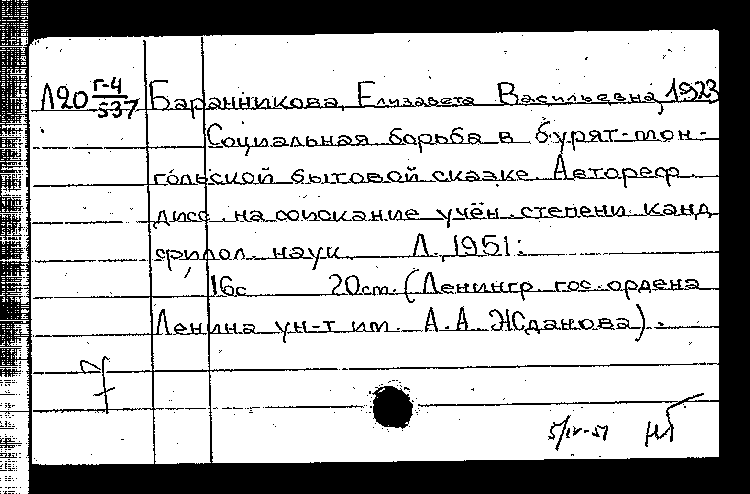 Л20 Г-4/537 Баранникова, Елизавета Васильевна, 1923
Социальная борьба в бурят-мон-
гольской бытовой сказке. Автореф.
дисс. на соискание учён. степени канд
филол. наук. Л., 1951.
16с 20см. (Ленингр. гос. ордена
Ленина ун-т им. А. А. Жданова).
5/IV-51